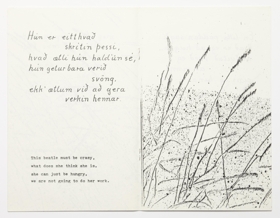 Hún er eitthvað
skrítin þessi,
hvað ætli hún haldi'ún sé,
hún getur bara verið
svöng.
ekki ætlum við að gera
verkin hennar.
This beetle must be crazy,
what does she think she is,
she can just be hungry,
we are not going to do her work.